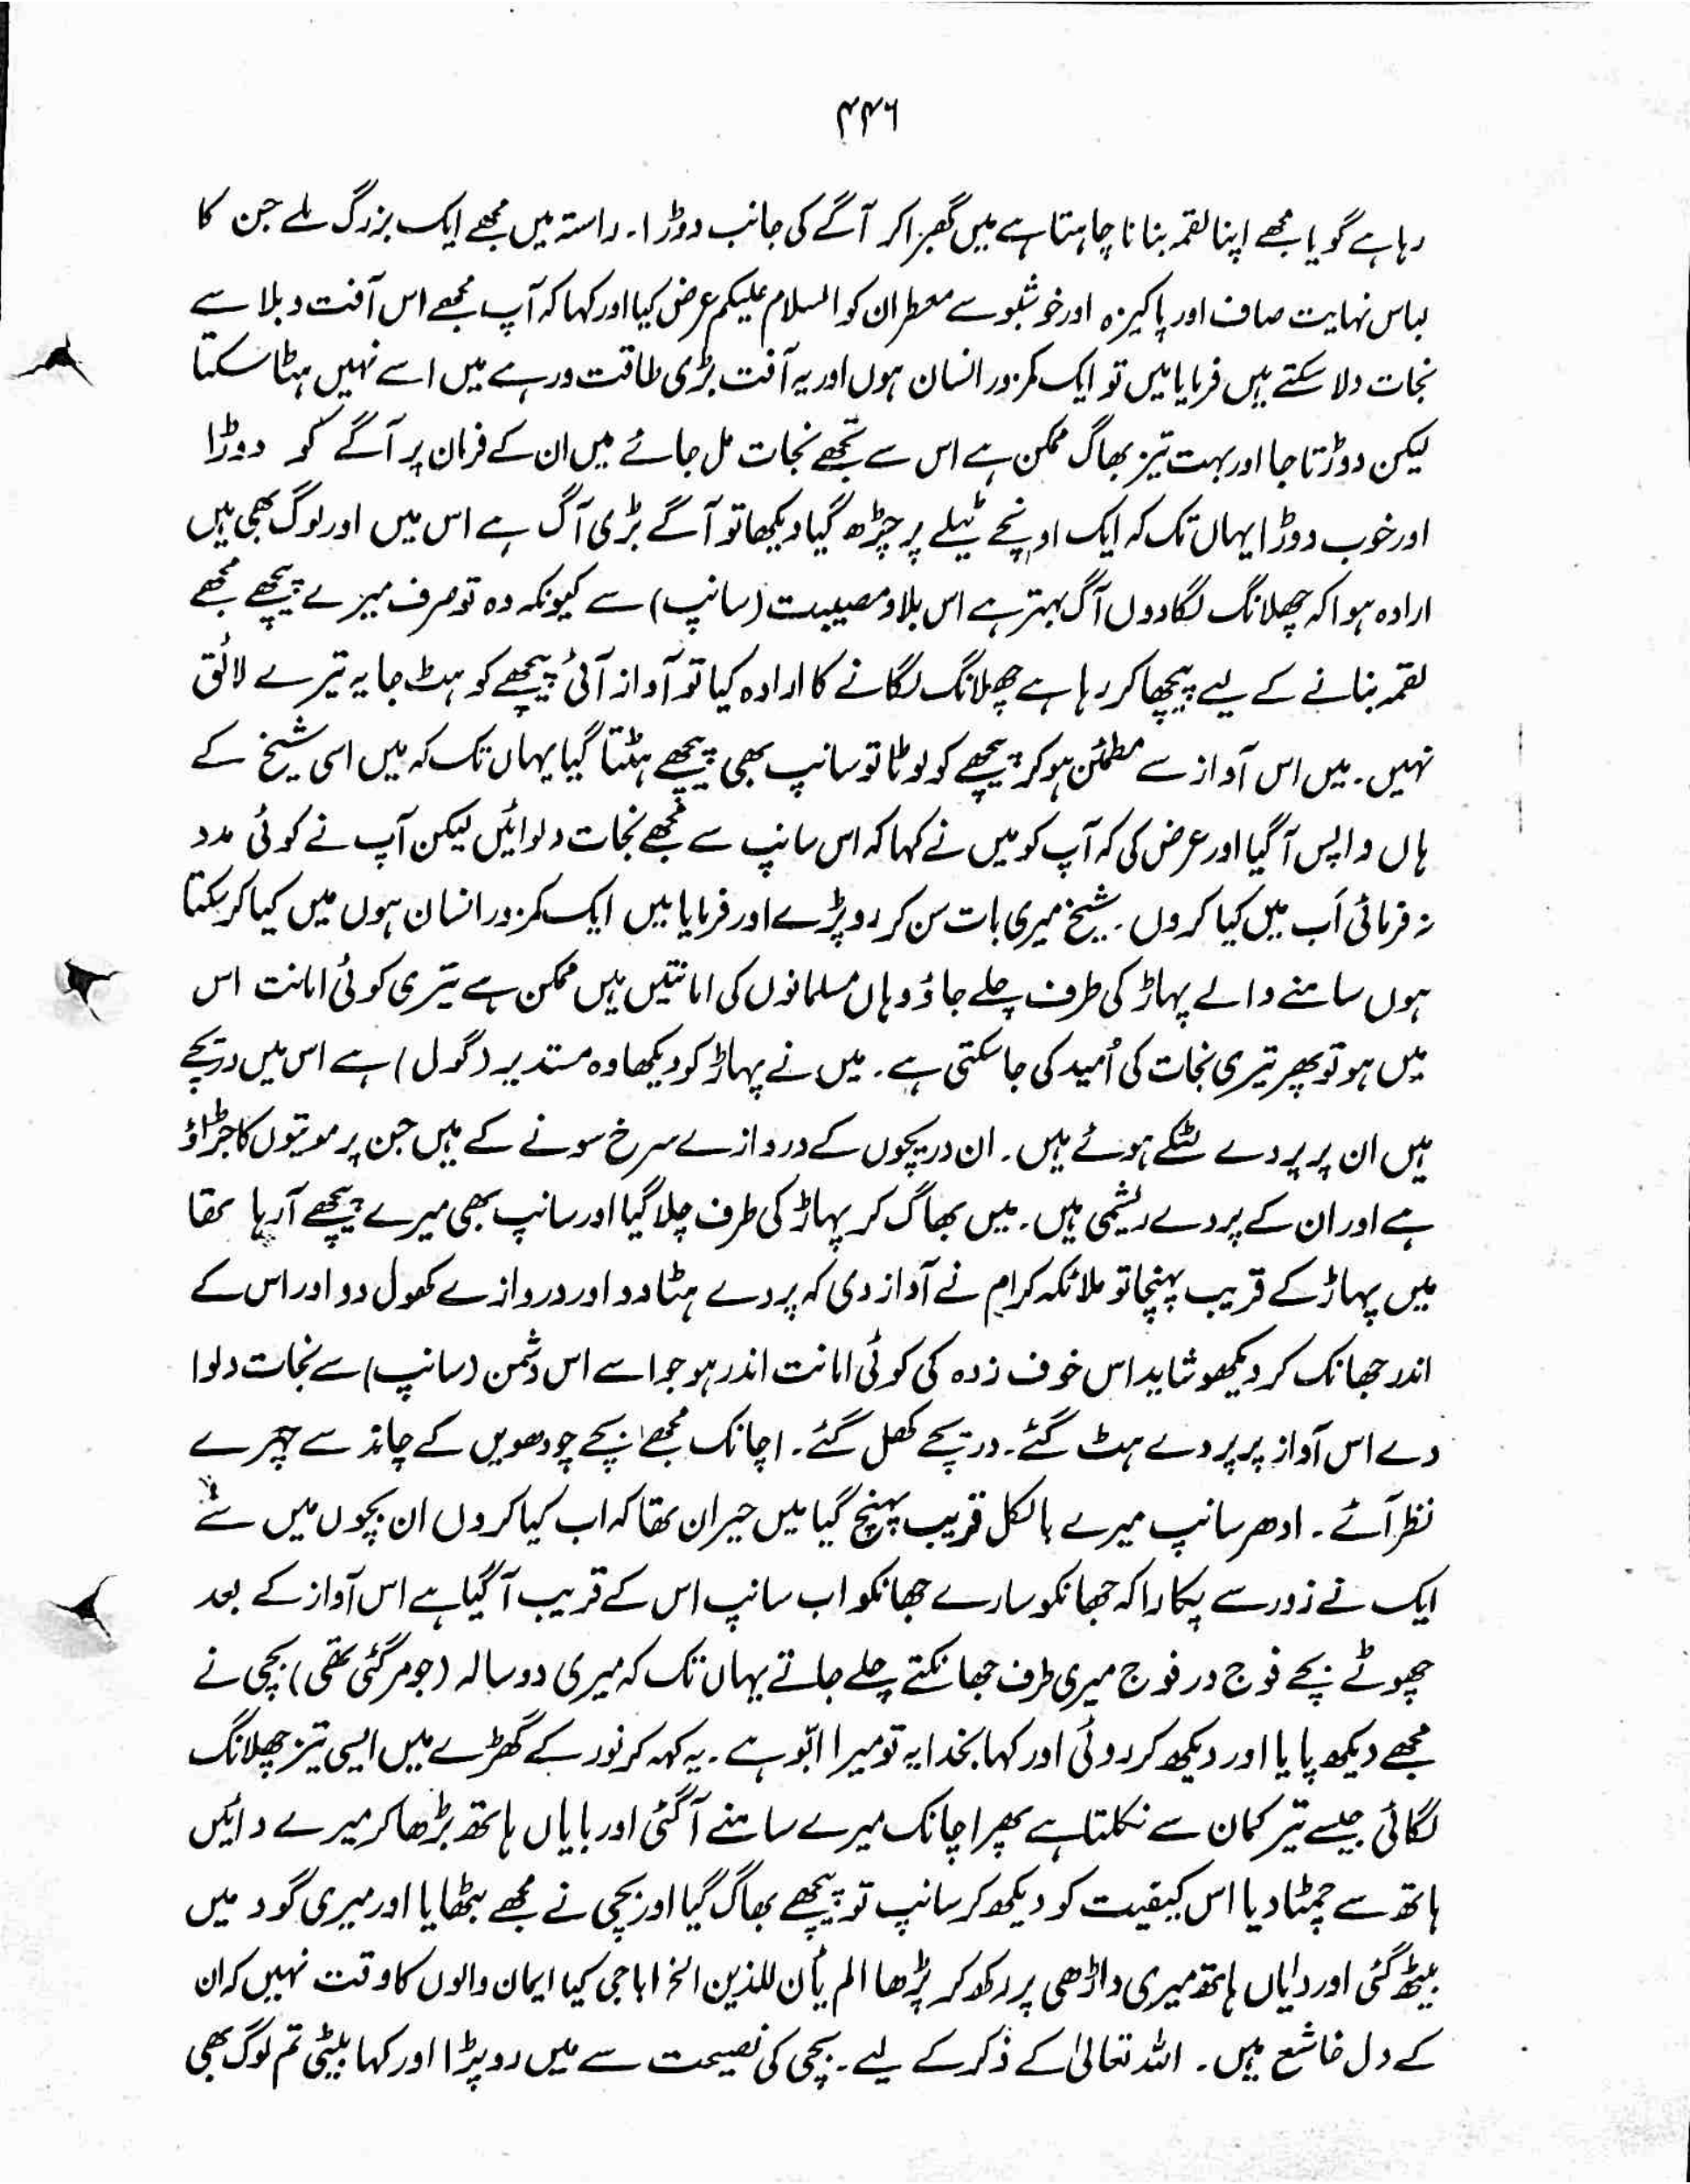 ۴۴۶
رہا ہے گویا مجھے اپنا لقمہ بنانا چاہتا ہے میں گھبرا کر آگے کی جانب دوڑا۔ راستہ میں مجھے ایک بزرگ ملے جن کا
لباس نہایت صاف اور پاکیزہ اور خوشبو سے معطر ان کو السلام علیکم عرض کیا اور کہا کہ آپ مجھے اس آفت و بلا سے
نجات دلا سکتے ہیں فرمایا میں تو ایک کمزور انسان ہوں اور یہ آفت بڑی طاقت ور ہے میں اسے نہیں ہٹا سکتا
لیکن دوڑتا جا اور بہت تیز بھاگ ممکن ہے اس سے تجھے نجات مل جائے میں ان کے فرمان پر آگے کو دوڑا
اور خوب دوڑا یہاں تک کہ ایک اونچے ٹیلے پر چڑھ گیا دیکھا تو آگے بڑی آگ ہے اس میں اور لوگ بھی ہیں
ارادہ ہوا کہ چھلانگ لگا دوں آگ بہتر ہے اس بلا و مصیبت (سانپ) سے کیونکہ وہ تو صرف میرے پیچھے مجھے
لقمہ بنانے کے لیے پیچھا کر رہا ہے چھلانگ لگانے کا ارادہ کیا تو آواز آئی پیچھے کو ہٹ جا یہ تیرے لائق
نہیں۔ میں اس آواز سے مطمئن ہو کر پیچھے کو لوٹا تو سانپ بھی پیچھے ہٹتا گیا یہاں تک کہ میں اسی شیخ کے
ہاں واپس آگیا اور عرض کی کہ آپ کو میں نے کہا کہ اس سانپ سے مجھے نجات دلوائیں لیکن آپ نے کوئی مدد
نہ فرمائی اَب میں کیا کروں۔ شیخ میری بات سن کر رو پڑے اور فرمایا میں ایک کمزور انسان ہوں میں کیا کر سکتا
ہوں سامنے والے پہاڑ کی طرف چلے جاؤ وہاں مسلمانوں کی امانتیں ہیں ممکن ہے تیری کوئی امانت اس
میں ہو تو پھر تیری نجات کی اُمید کی جا سکتی ہے۔ میں نے پہاڑ کو دیکھا وہ مستدیر (گول) ہے اس میں دریچے
ہیں ان پر پردے لٹکے ہوئے ہیں۔ ان دریچوں کے دروازے سرخ سونے کے ہیں جن پر موتیوں کا جڑاؤ
ہے اور ان کے پردے ریشمی ہیں۔ میں بھاگ کر پہاڑ کی طرف چلا گیا اور سانپ بھی میرے پیچھے آ رہا تھا
میں پہاڑ کے قریب پہنچا تو ملائکہ کرام نے آواز دی کہ پردے ہٹا دو اور دروازے کھول دو اور اس کے
اندر جھانک کر دیکھو شاید اس خوف زدہ کی کوئی امانت اندر ہو جو اسے اس دشمن (سانپ) سے نجات دلوا
دے اس آواز پر پردے ہٹ گئے۔ دریچے کھل گئے۔ اچانک مجھے بچے چودھویں کے چاند سے چہرے
نظر آئے۔ ادھر سانپ میرے بالکل قریب پہنچ گیا میں حیران تھا کہ اب کیا کروں ان بچوں میں سے
ایک نے زور سے پکارا کہ جھانکو سارے جھانکو اب سانپ اس کے قریب آگیا ہے اس آواز کے بعد
چھوٹے بچے فوج در فوج میری طرف جھانکتے چلے جاتے یہاں تک کہ میری دو سالہ (جو مر گئی تھی) بچی نے
مجھے دیکھ پایا اور دیکھ کر روئی اور کہا بخدا یہ تو میرا ابّو ہے۔ یہ کہہ کر نور کے گھڑے میں ایسی تیز چھلانگ
لگائی جیسے تیر کمان سے نکلتا ہے پھر اچانک میرے سامنے آگئی اور بایاں ہاتھ بڑھا کر میرے دائیں
ہاتھ سے چمٹا دیا اس کیفیت کو دیکھ کر سانپ تو پیچھے بھاگ گیا اور بچی نے مجھے بٹھایا اور میری گود میں
بیٹھ گئی اور دایاں ہاتھ میری داڑھی پر رکھ کر پڑھا الم یأن للذین الخ ابا جی کیا ایمان والوں کا وقت نہیں کہ ان
کے دل خاشع ہیں۔ اللہ تعالیٰ کے ذکر کے لیے۔ بچی کی نصیحت سے میں رو پڑا اور کہا بیٹی تم لوگ بھی